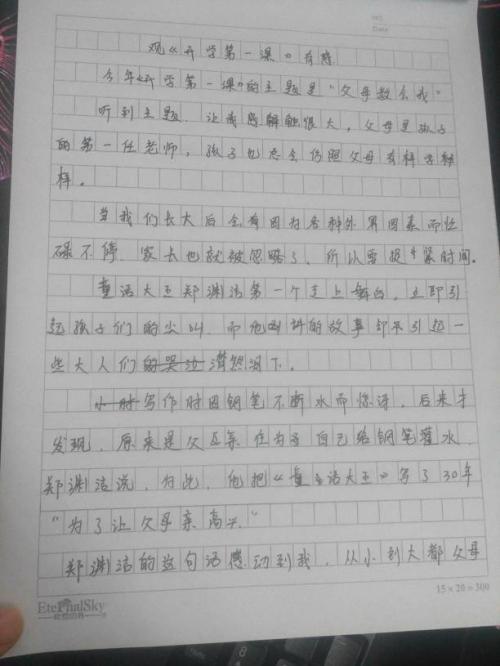 Date
观《开学第一课》有感
今年《开学第一课》的主题是"父母教会我"
听到主题,让我感触很大,父母是孩子
的第一任老师,孩子也总会仿照父母有样学
样。
当我们长大后会有因为各种外界因素而忙
碌不停,家长也就被忽略了,所以要抓紧时间。
童话大王郑渊洁第一个走上舞台,立即引
起孩子们的尖叫,而他所讲的故事却不引起一
些大人们的潸然泪下。
写作时因钢笔不断水而惊讶,后来才
发现,原来是父亲每天为自己给钢笔灌水,
郑渊洁说,他把《童话大王》写了30年
"为了让父母亲高兴"
郑渊洁的这句话感动到我,从小到大都父母
EtePhalSky
15×20=300